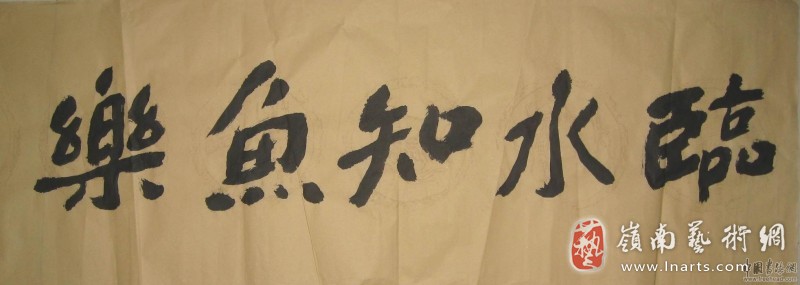 臨水知魚樂
嶺南藝術網
www.lnarts.com